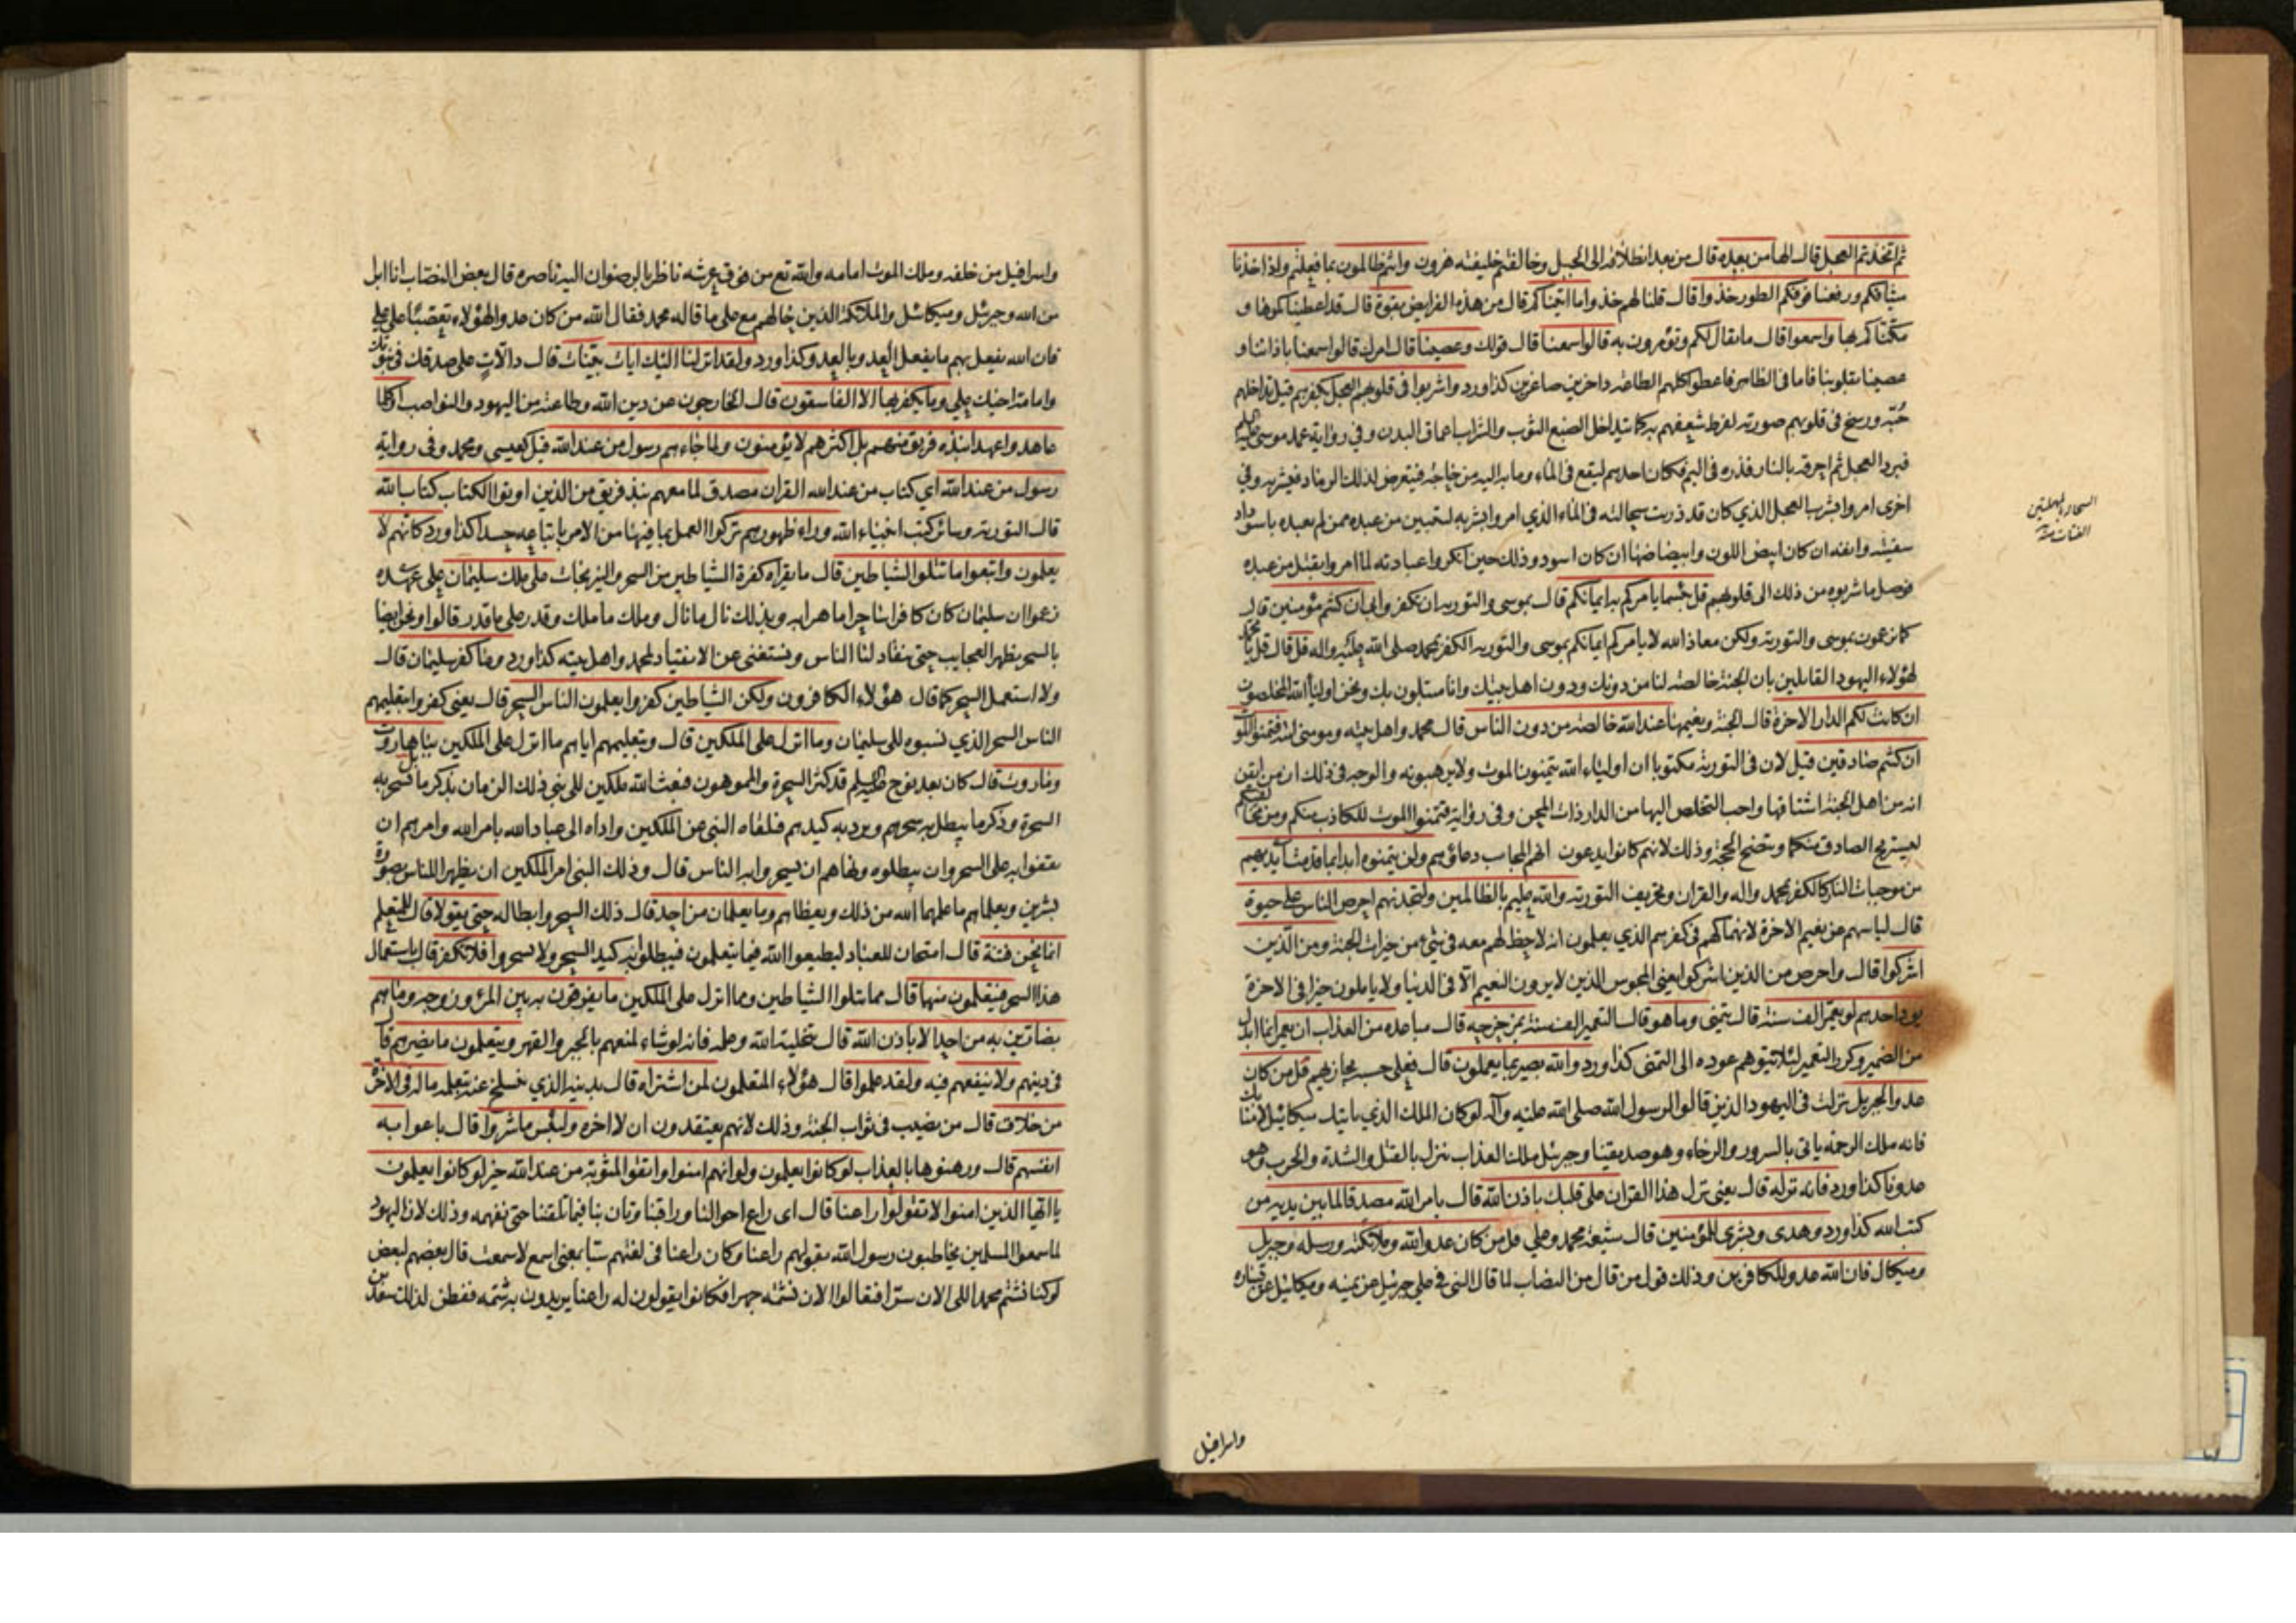 ثم اتخذتم العجل قال الها من بعده قال من بعد انطلاقه الى الجبل وخالفتم خليفته هرون وانتم ظالمون بما فعلتم واذ اخذنا
ميثاقكم ورفعنا فوقكم الطور خذوا قال قلنا لهم خذوا ما اتيناكم قال من هذه الفرايض بقوة قال قد اعطيناكموها و
مكناكم بها واسمعوا قال ما يقال لكم وتؤمرون به قالوا سمعنا قال قولك وعصينا قال امرك قالوا سمعنا باذاننا و
عصينا بقلوبنا فاما في الظاهر فاعطوا كلهم الطاعة داخرين صاغرين كذا ورد واشربوا في قلوبهم العجل بكفرهم قيل تداخلهم
حبه ورسخ في قلوبهم صورته لفرط شغفهم به كما يتداخل الصبغ الثوب والشراب اعماق البدن وفي رواية عمد موسى عليه السلم
فبرد العجل ثم احرقه بالنار فذره في اليم فكان احدهم ليقع في الماء وما به اليه من حاجة فيتعرض لذلك الرماد فيشربه وفي
اخرى امروا بشرب العجل الذي كان قد ذريت سحالته في الماء الذي امروا بشربه لتبين من عبده ممن لم يعبده باسوداد
شفتيه وانفه ان كان ابيض اللون وابيضاضها ان كان اسود وذلك حين انكروا عبادته لما امروا بقتل من عبده
فوصل ما شربوه من ذلك الى قلوبهم قل بئسما يامركم به ايمانكم قال بموسى والتورية ان تكفروا بي ان كنتم مؤمنين قال
كما تزعمون بموسى والتورية ولكن معاذ الله لا يامركم ايمانكم بموسى والتورية الكفر بمحمد صلى الله عليه واله قل قال قل يا محمد
لهؤلاء اليهود القايلين بان الجنة خالصة لنا من دونك ودون اهل بيتك وانا مبتلون بك ونحن اولياء الله المخلصون
ان كانت لكم الدار الاخرة قال الجنة ونعيمها عند الله خالصة من دون الناس قال محمد واهل بيته ومومني امته فتمنوا الموت
ان كنتم صادقين قيل لان في التورية مكتوبا ان اولياء الله يتمنون الموت ولا يرهبونه والوجه في ذلك ان من ايقن
انه من اهل الجنة اشتاقها واحب التخلص اليها من الدار ذات المحن وفي رواية فتمنوا الموت للكاذب منكم ومن مخالفيكم
ليستريح الصادق منكما ويتضح الحجة وذلك لانهم كانوا يدعون انهم المجاب دعاؤهم ولن يتمنوه ابدا بما قدمت ايديهم
من موجبات النار كالكفر بمحمد واله والقران وتحريف التورية والله عليم بالظالمين ولتجدنهم احرص الناس على حيوة
قال لياسهم عن نعيم الاخرة لانهماكهم في كفرهم الذي يعلمون انه لا حظ لهم معه في شيء من خيرات الجنة ومن الذين
اشركوا قال واحرص من الذين اشركوا يعني المجوس الذين لا يرون النعيم الا في الدنيا ولا ياملون خيرا في الاخرة
يود احدهم لو يعمر الف سنة قال يتمنى وما هو قال التعمير الف سنة بمزحزحه قال مباعده من العذاب ان يعمر انما ابدل
من الضمير وكرر التعمير لئلا يتوهم عوده الى التمني كذا ورد والله بصير بما يعملون قال فعلى حسبه يجازيهم قل من كان
عدوا لجبريل نزلت في اليهود الذين قالوا لرسول الله صلى الله عليه وآله لو كان الملك الذي ياتيك ميكائيل لامنا بك
فانه ملك الرحمة ياتي بالسرور والرخاء وهو صديقنا وجبرئيل ملك العذاب ينزل بالقتل والشدة والحرب وهو
عدونا كذا ورد فانه نزله قال يعني نزل هذا القران على قلبك باذن الله قال بامر الله مصدقا لما بين يديه من
كتب الله كذا ورد وهدى وبشرى للمؤمنين قال شيعة محمد وعلي قل من كان عدوا لله وملائكته ورسله وجبريل
وميكال فان الله عدو للكافرين وذلك قول من قال من النصاب لما قال النبي في علي جبرئيل عن يمينه وميكائيل عن يساره
السحالة بالمهملتين
الفتات منه
واسرافيل
واسرافيل من خلفه وملك الموت امامه والله تع من فوق عرشه ناظر بالرضوان اليه ناصره قال بعض النصاب انا ابرأ
من الله وجبرئيل وميكائيل والملائكة الذين حالهم مع علي ما قاله محمد فقال الله من كان عدوا لهؤلاء تعصبا على علي
فان الله يفعل بهم ما يفعل العدو بالعدو كذا ورد ولقد انزلنا اليك ايات بينات قال دالات على صدقك في نبوتك
وامامة اخيك علي وما يكفر بها الا الفاسقون قال الخارجون عن دين الله وطاعته من اليهود والنواصب اوكلما
عاهدوا عهدا نبذه فريق منهم بل اكثرهم لا يؤمنون ولما جاءهم رسول من عند الله قيل كعيسى ومحمد وفي رواية
رسول من عند الله اي كتاب من عند الله القران مصدق لما معهم نبذ فريق من الذين اوتوا الكتاب كتاب الله
قال التورية وسائر كتب انبياء الله وراء ظهورهم تركوا العمل بما فيها من الامر باتباعه حسدا كذا ورد كانهم لا
يعلمون واتبعوا ما تتلوا الشياطين قال ما يقراه كفرة الشياطين من السحر والنيرنجات على ملك سليمان على عهده
زعموا ان سليمان كان كافرا ساحرا ماهرا به وبذلك نال ما نال وملك ما ملك وقدر على ما قدر قالوا ونحن ايضا
بالسحر نظهر العجايب حتى ينقاد لنا الناس ونستغني عن الانقياد لمحمد واهل بيته كذا ورد وما كفر سليمان قال
ولا استعمل السحر كما قال هؤلاء الكافرون ولكن الشياطين كفروا يعلمون الناس السحر قال يعني كفروا بتعليمهم
الناس السحر الذي نسبوه الى سليمان وما انزل على الملكين قال وبتعليمهم اياهم ما انزل على الملكين ببابل هاروت
وماروت قال كان بعد نوح عليه السلم قد كثر السحرة والمموهون فبعث الله ملكين الى نبي ذلك الزمان بذكر ما تسحر به
السحرة وذكر ما يبطل به سحرهم ويرد به كيدهم فتلقاه النبي عن الملكين واداه الى عباد الله بامر الله وامرهم ان
يقفوا به على السحر وان يبطلوه ونهاهم ان يسحروا به الناس قال وذلك النبي امر الملكين ان يظهرا للناس بصورة
بشرين ويعلماهم ما علمهما الله من ذلك ويعظاهم وما يعلمان من احد قال ذلك السحر وابطاله حتى يقولا قال للمتعلم
انما نحن فتنة قال امتحان للعباد ليطيعوا الله فيما يتعلمون فيبطلوا به كيد السحر ولا يسحروا فلا تكفر قال باستعمال
هذا السحر فيتعلمون منها قال مما تتلوا الشياطين ومما انزل على الملكين ما يفرقون به بين المرء وزوجه وما هم
بضارين به من احد الا باذن الله قال بتخلية الله وعلمه فانه لو شاء لمنعهم بالجبر والقهر ويتعلمون ما يضرهم قال
في دينهم ولا ينفعهم فيه ولقد علموا قال هؤلاء المتعلمون لمن اشتراه قال بدينه الذي ينسلخ عنه بتعلمه ماله في الاخرة
من خلاق قال من نصيب في ثواب الجنة وذلك لانهم يعتقدون ان لا اخرة ولبئس ما شروا قال باعوا به
انفسهم قال ورهنوها بالعذاب لو كانوا يعلمون ولو انهم امنوا واتقوا لمثوبة من عند الله خير لو كانوا يعلمون
يا ايها الذين امنوا لا تقولوا راعنا قال اي راع احوالنا وراقبنا وتان بنا فيما تلقننا حتى نفهمه وذلك لان اليهود
لما سمعوا المسلمين يخاطبون رسول الله بقولهم راعنا وكان راعنا في لغتهم سبا بمعنى اسمع لا سمعت قال بعضهم لبعض
لو كنا نشتم محمدا الى الان سرا فتعالوا الان نشتمه جهرا فكانوا يقولون له راعنا يريدون به شتمه ففطن لذلك سعد بن